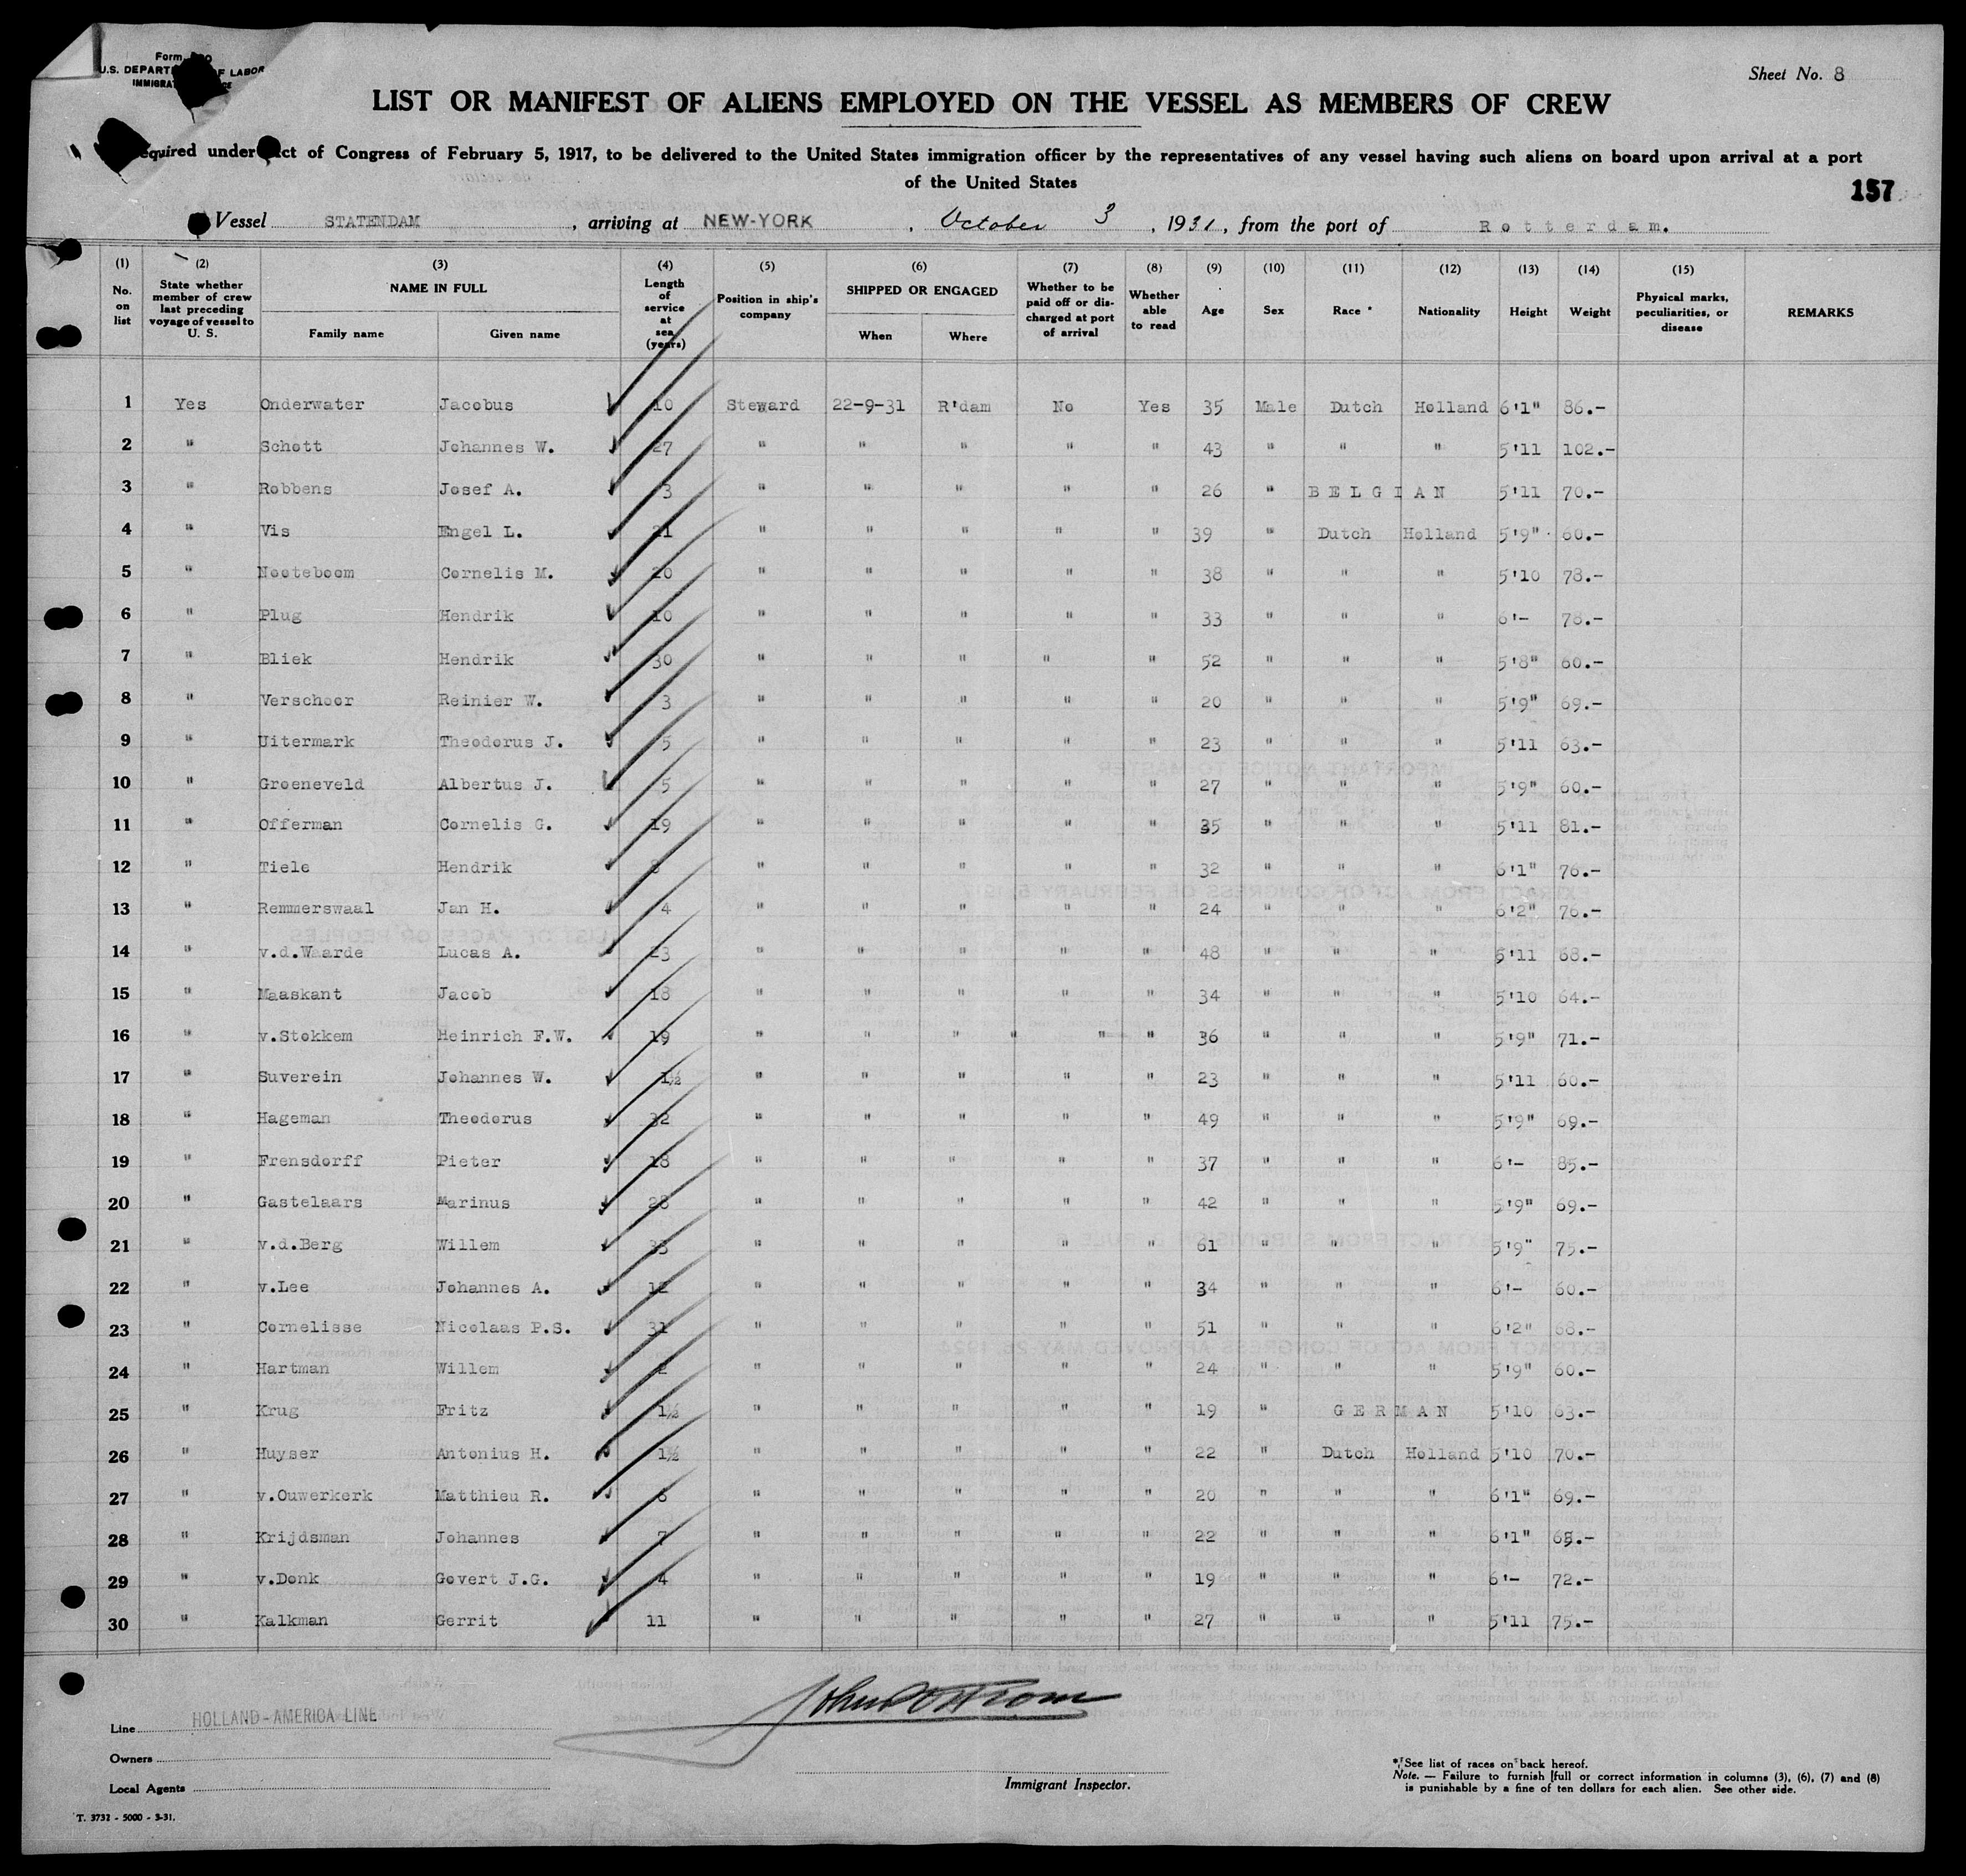 Form
U.S. DEPARTMENT OF LABOR
IMMIGRAT
Sheet No. 8
LIST OR MANIFEST OF ALIENS EMPLOYED ON THE VESSEL AS MEMBERS OF CREW
equired under Act of Congress of February 5, 1917, to be delivered to the United States immigration officer by the representatives of any vessel having such aliens on board upon arrival at a port
of the United States
157
Vessel STATENDAM, arriving at NEW-YORK, October 3, 1931, from the port of Rotterdam.
(1) No. on list (2) State whether member of crew last preceding voyage of vessel to U. S. (3) NAME IN FULL Family name Given name (4) Length of service at sea (years) (5) Position in ship's company (6) SHIPPED OR ENGAGED When Where (7) Whether to be paid off or discharged at port of arrival (8) Whether able to read (9) Age (10) Sex (11) Race * (12) Nationality (13) Height (14) Weight (15) Physical marks, peculiarities, or disease REMARKS
1 Yes Onderwater Jacobus 10 Steward 22-9-31 R'dam No Yes 35 Male Dutch Holland 6'1" 86.-
2 " Schott Johannes W. 27 " " " " " 43 " " " 5'11 102.-
3 " Robbens Josef A. 3 " " " " " 26 " BELGIAN 5'11 70.-
4 " Vis Engel L. 21 " " " " " 39 " Dutch Holland 5'9" 60.-
5 " Nooteboom Cornelis M. 20 " " " " " 38 " " " 5'10 78.-
6 " Plug Hendrik 10 " " " " " 33 " " " 6'- 78.-
7 " Bliek Hendrik 30 " " " " " 52 " " " 5'8" 60.-
8 " Verschoor Reinier W. 3 " " " " " 20 " " " 5'9" 69.-
9 " Uitermark Theodorus J. 5 " " " " " 23 " " " 5'11 63.-
10 " Groeneveld Albertus J. 5 " " " " " 27 " " " 5'9" 60.-
11 " Offerman Cornelis G. 19 " " " " " 35 " " " 5'11 81.-
12 " Tiele Hendrik 8 " " " " " 32 " " " 6'1" 76.-
13 " Remmerswaal Jan H. 4 " " " " " 24 " " " 6'2" 76.-
14 " v.d.Waarde Lucas A. 23 " " " " " 48 " " " 5'11 68.-
15 " Maaskant Jacob 18 " " " " " 34 " " " 5'10 64.-
16 " v.Stokkem Heinrich F.W. 19 " " " " " " 36 " " " 5'9" 71.-
17 " Suverein Johannes W. 1½ " " " " " 23 " " " 5'11 60.-
18 " Hageman Theodorus 32 " " " " " 49 " " " 5'9" 69.-
19 " Frensdorff Pieter 18 " " " " " 37 " " " 6'- 85.-
20 " Gastelaars Marinus 28 " " " " " 42 " " " 5'9" 69.-
21 " v.d.Berg Willem 33 " " " " " 61 " " " 5'9" 75.-
22 " v.Lee Johannes A. 12 " " " " " 34 " " " 6'- 60.-
23 " Cornelisse Nicolaas P.S. 31 " " " " " 51 " " " 6'2" 68.-
24 " Hartman Willem 2 " " " " " 24 " " " 5'9" 60.-
25 " Krug Fritz 1½ " " " " " 19 " GERMAN 5'10 63.-
26 " Huyser Antonius H. 1½ " " " " " 22 " Dutch Holland 5'10 70.-
27 " v.Ouwerkerk Matthieu R. 6 " " " " " 20 " " " 6'1" 69.-
28 " Krijdsman Johannes 7 " " " " " 22 " " " 6'1" 65.-
29 " v.Donk Govert J.G. 4 " " " " " 19 " " " 6'- 72.-
30 " Kalkman Gerrit 11 " " " " " 27 " " " 5'11 75.-
Line HOLLAND-AMERICA LINE
Owners
Local Agents
Immigrant Inspector.
* See list of races on back hereof.
Note. — Failure to furnish full or correct information in columns (3), (6), (7) and (8)
is punishable by a fine of ten dollars for each alien. See other side.
T. 3732 - 5000 - 3-31.